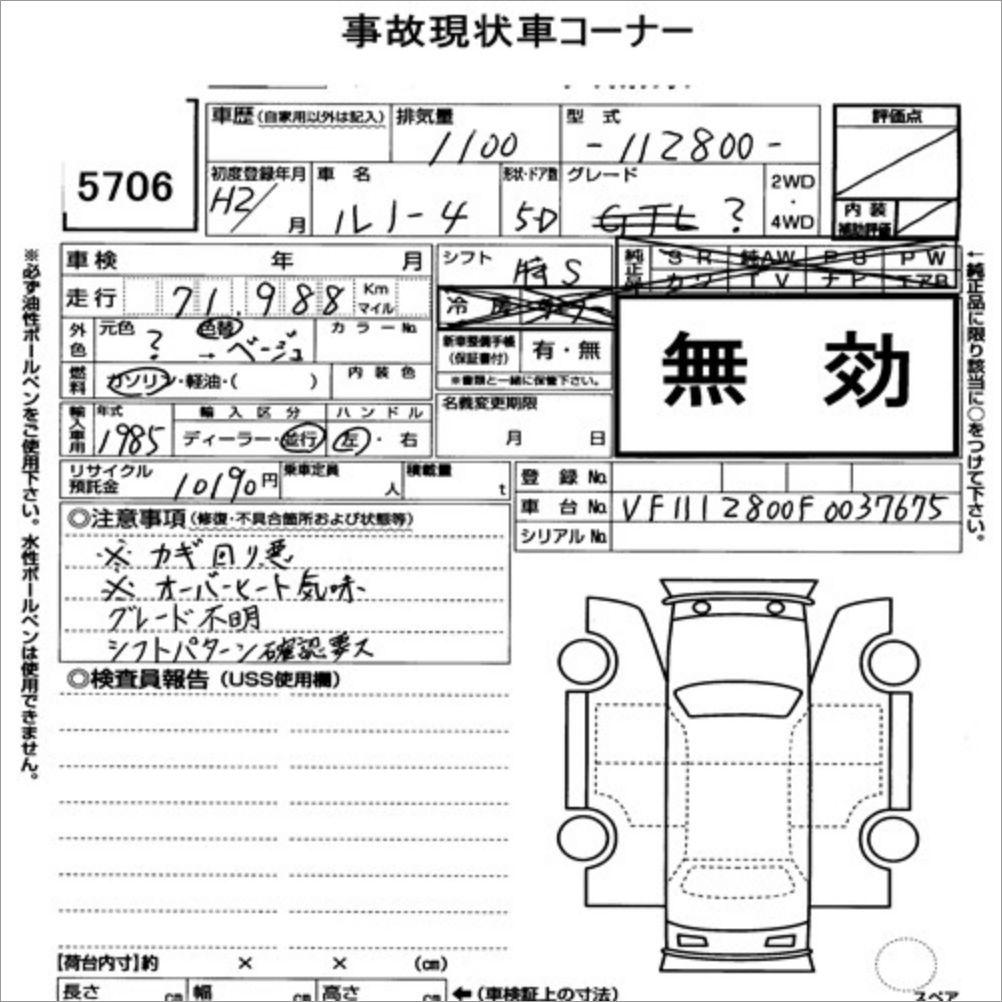 事故現状車コーナー
車歴 (自家用以外は記入) 排気量 1100 型式 -112800-
評価点
5706
初度登録年月 H2/ 月 車名 ルノー4 形状・ドア数 5D グレード GTL ? 2WD・4WD
内装補助評価
車検 年 月
シフト S
純正品 SR 純AW PS PW
カワ TV ナビ エアB
走行 71,988 Km マイル
冷房
外色 元色 ? 色替 → ベージュ カラーNo.
新車整備手帳 (保証書付) 有・無
※書類と一緒に保管下さい。
無効
燃料 ガソリン・軽油・( ) 内装色
輸入車用 年式 1985 輸入区分 ディーラー・並行 ハンドル 左・右
名義変更期限 月 日
リサイクル預託金 10190円 乗車定員 人 積載量 t
登録No.
車台No. VF1112800F0037675
シリアルNo.
◎注意事項 (修復・不具合箇所および状態等)
※ カギ回り悪
※ オーバーヒート気味
グレード不明
シフトパターン確認要ス
◎検査員報告 (USS使用欄)
【荷台内寸】約 × × (cm)
長さ cm 幅 cm 高さ cm ←(車検証上の寸法)
スペア
※必ず油性ボールペンをご使用下さい。水性ボールペンは使用できません。
←純正品に限り該当に○をつけて下さい。